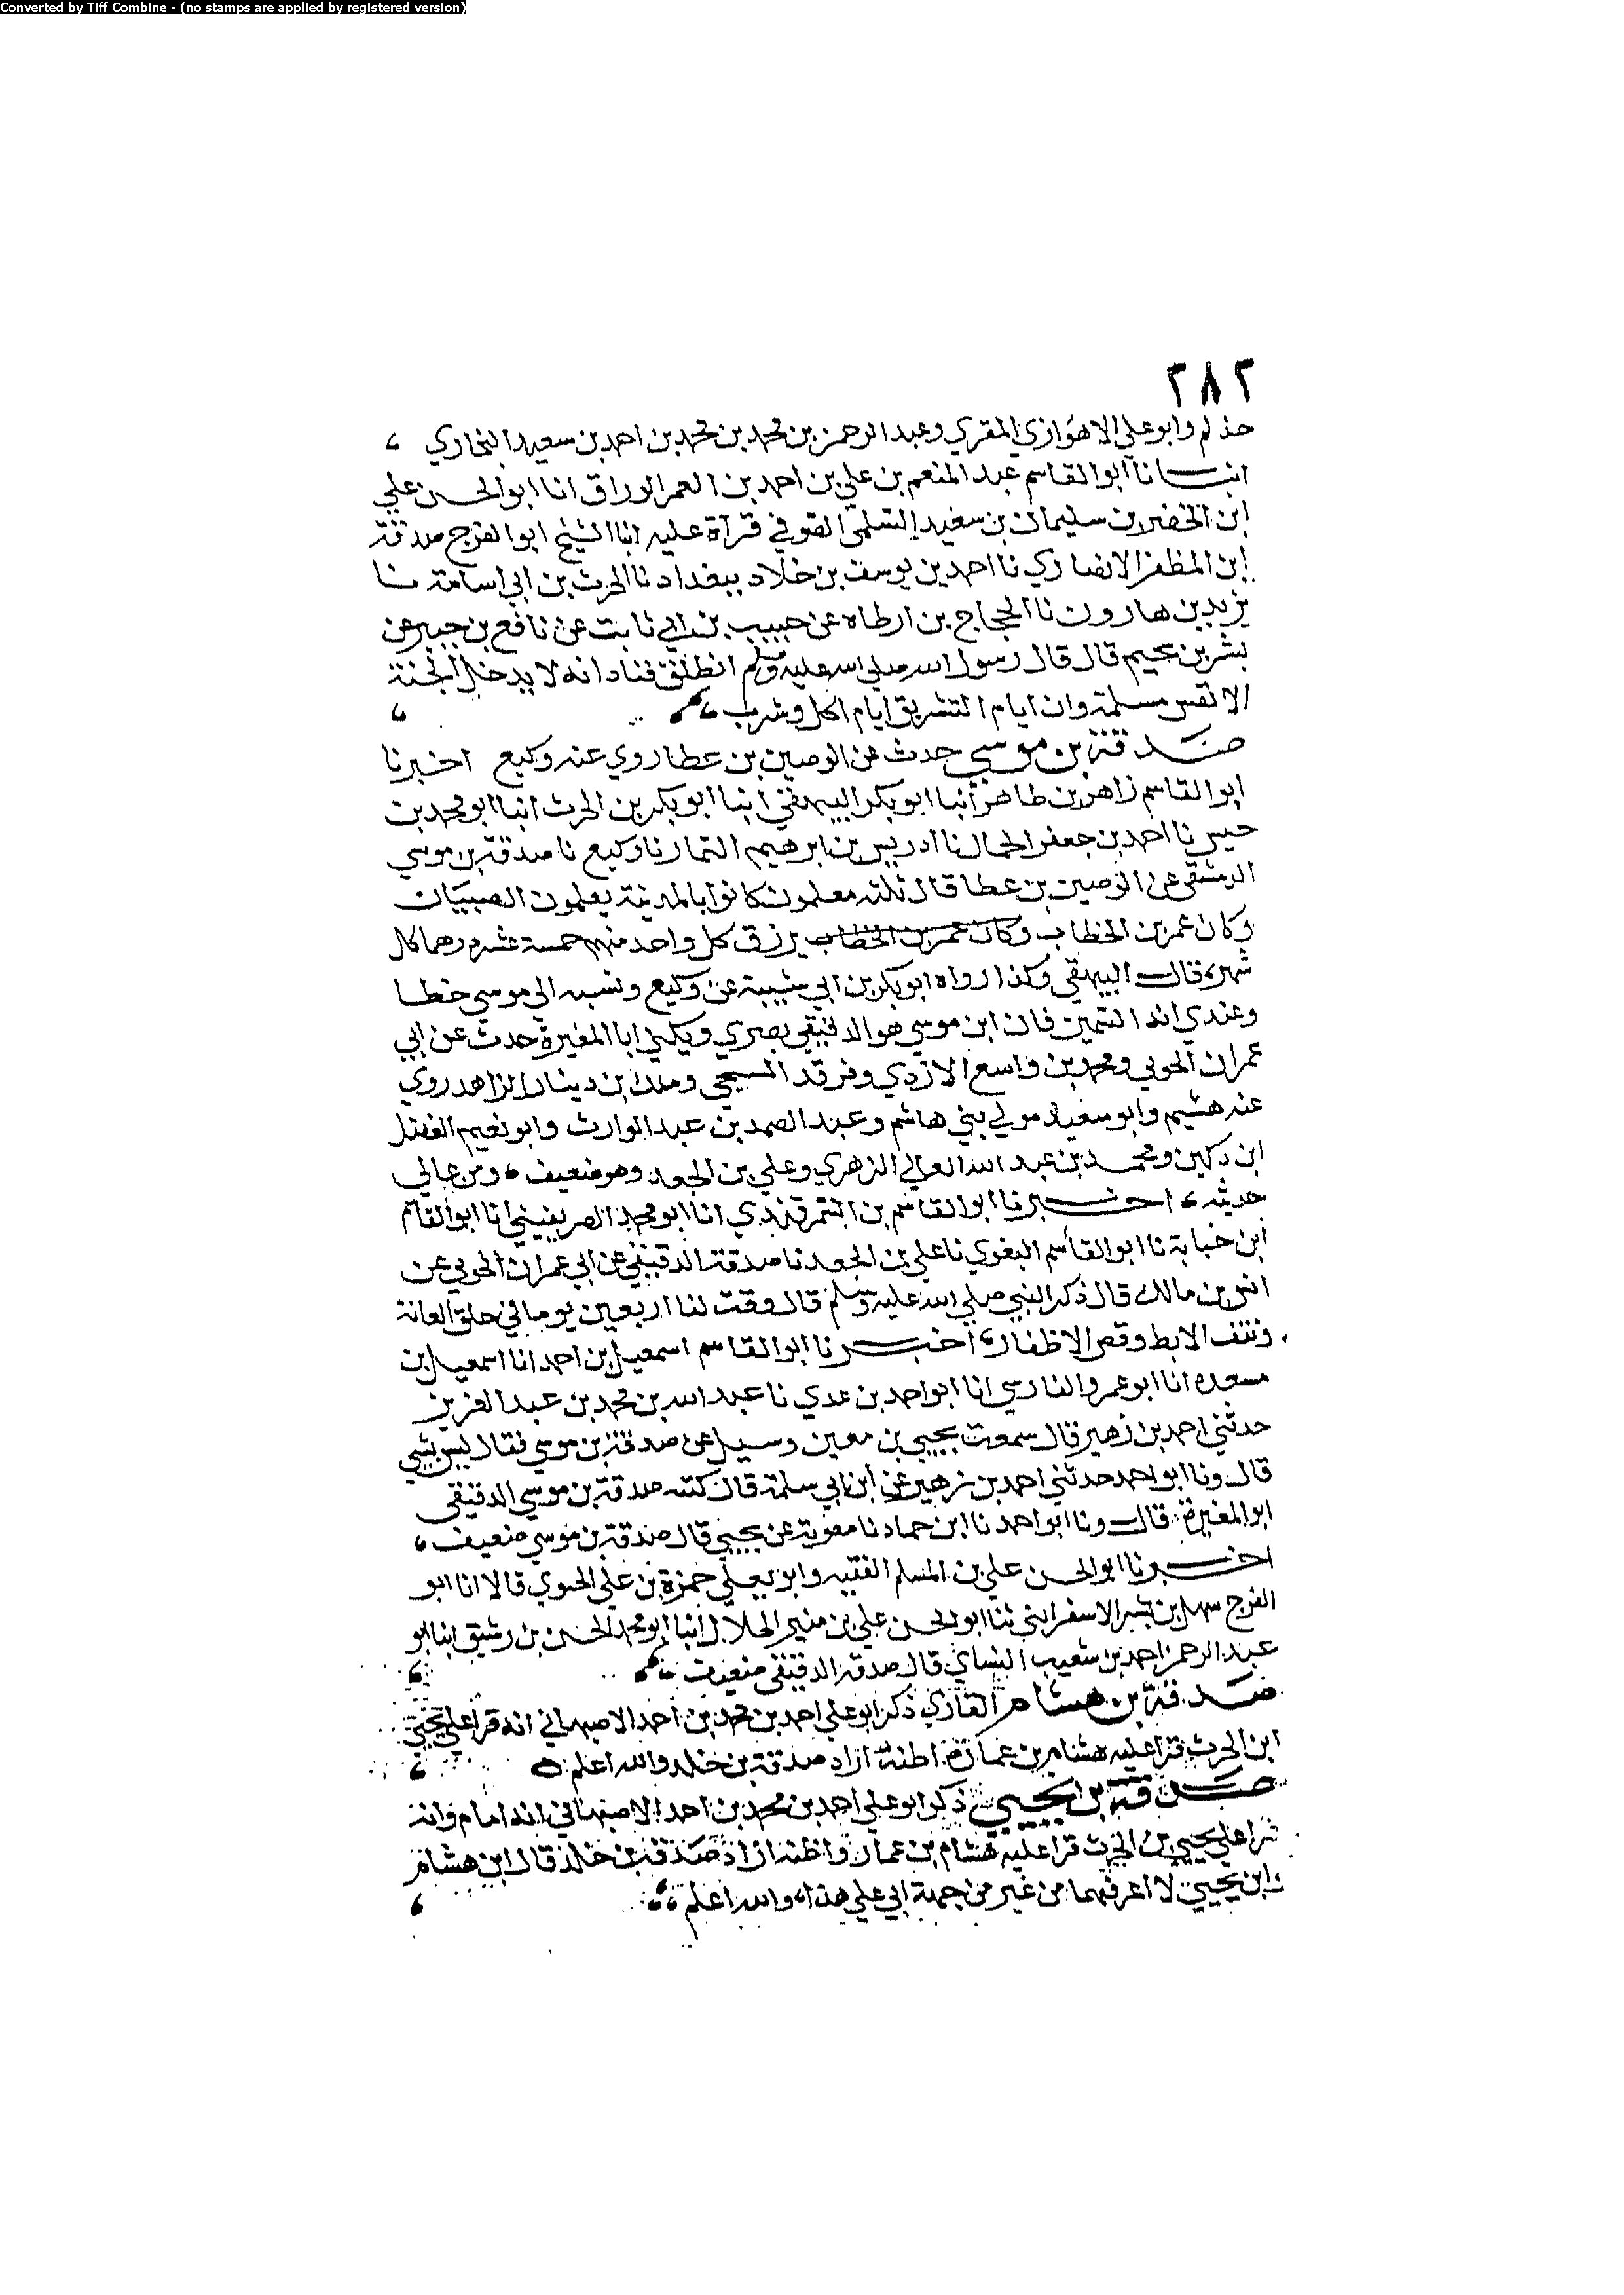 Converted by Tiff Combine - (no stamps are applied by registered version)
٢٨٢
حذلم وابو علي الاهوازي المقري وعبد الرحمن بن محمد بن محمد بن احمد بن سعيد البخاري ،
انبـــانا ابو القاسم عبد المنعم بن علي بن احمد بن الغمر الوراق انا ابو الحسن علي
ابن الخضر بن سليمان بن سعيد السلمي الصوفي قرآة عليه انبا الشيخ ابو الفرج صدقة
ابن المظفر الانصاري نا احمد بن يوسف بن خلاد ببغداد نا الحرث بن ابي اسامة نـا
يزيد بن هارون نا الحجاج بن ارطاه عن حبيب بن ابي ثابت عن نافع بن جبير عن
بشر بن سحيم قال قال رسول الله صلى الله عليه وسلم انطلق فناد انه لا يدخل الجنة
الا نفس مسلمة وان ايام التشريق ايام اكل وشرب ،
صدقة بن موسي حدث عن الوضين بن عطا روي عنه وكيع اخبرنا
ابو القاسم زاهر بن طاهر أنبا ابو بكر البيهقي ابنا ابو بكر بن الحرث انبا ابو محمد بن
حيـان نا احمد بن جعفر الجمال نا ادريس بن ابرهيم التمار نا وكيع نا صدقة بن موسي
الدمشقي عن الوضين بن عطا قال ثلثه معلمون كانوا بالمدينة يعلمون الصبيان
وكان عمر بن الخطاب وكان عمر بن الخطاب يرزق كل واحد منهم خمسة عشر درهما كل
شهر، قال البيهقي وكذا رواه ابو بكر بن ابي شيبة عن وكيع ونسبه الي موسي خطـا
وعندي انه السمين فان ابن موسي هو الدقيقي بصري ويكني ابا المغيرة حدث عن ابي
عمران الجوني ومحمد بن واسع الازدي وفرقد السبخي وملك بن دينار الزاهد روي
عنه هشيم وابو سعيد مولي بني هاشم وعبد الصمد بن عبد الوارث وابو نعيم الفضل
ابن دكين ومحمد بن عبد الله الزهري وعلي بن الجعد وهو ضعيف ، ومن عالي
حديثه ، اخــبرنا ابو القاسم بن السمرقندي انا ابو محمد الصريفيني انا ابو القاسم
ابن حبابة نا ابو القاسم البغوي نا علي بن الجعد نا صدقة الدقيقي عن ابي عمران الجوني عن
انس بن مالك قال ذكر النبي صلي الله عليه وسلم قال وقت لنا اربعين يوما في حلق العانة
ونتف الابط وقص الاظفار، اخبـــرنا ابو القاسم اسمعيل بن احمد انا اسمعيل بن
مسعده انا ابو عمرو الفارسي انا ابو احمد بن عدي نا عبد الله بن محمد بن عبد العزيز
حدثني احمد بن زهير قال سمعت يحيي بن معين وسيل عن صدقة بن موسي فقال ليس بشي
قال ونا ابو احمد حدثني احمد بن زهير عن ابن ابي سلمة قال كنيته صدقة بن موسي الدقيقي
ابو المغيرة قال ونا ابو احمد نا ابن حماد نا معوية عن يحيي قال صدقة بن موسي ضعيف ،
اخــبرنا ابو الحسن علي بن المسلم الفقيه وابو يعلي حمزة بن علي الحبوبي قالا انا ابو
الفرج سهل بن بشر الاسفرايني ثنا ابو الحسن علي بن منير الخلال انبا ابو محمد الحسن بن رشيق ابنا ابو
عبد الرحمن احمد بن شعيب النساي قال صدقة الدقيقي ضعيف ،
صدقة بن هشام القاري ذكر ابو علي احمد بن محمد بن احمد الاصبهاني انه قرا علي يحيي
ابن الحرث قرا عليه هشام بن عمار، اظنه اراد صدقة بن خالد والله اعلم ٥ ،
صدقة بن يحيي ذكر ابو علي احمد بن محمد بن احمد الاصبهاني انه امام وانه
قرا علي يحيي بن الحرث قرا عليه هشام بن عمار واظنه اراد صدقة بن خالد قال ابن هشام
وابن يحيي لا اعرفهما من غير من جهة ابي علي هذا، والله اعلم ،